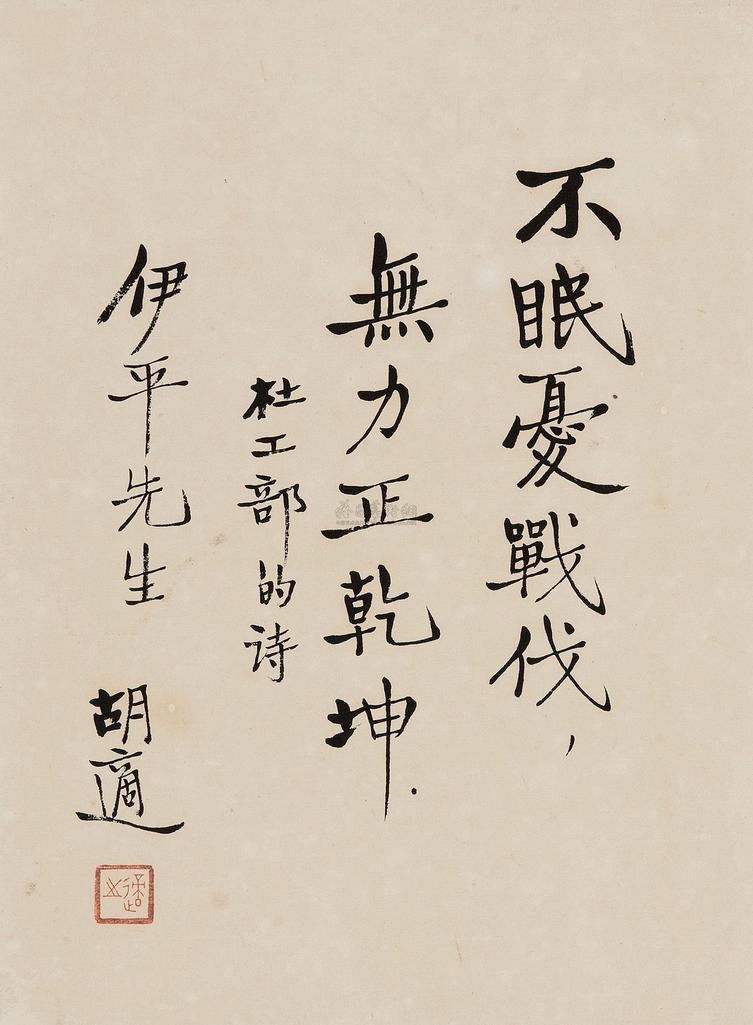 不眠憂戰伐，
無力正乾坤.
杜工部的诗
伊平先生
胡適